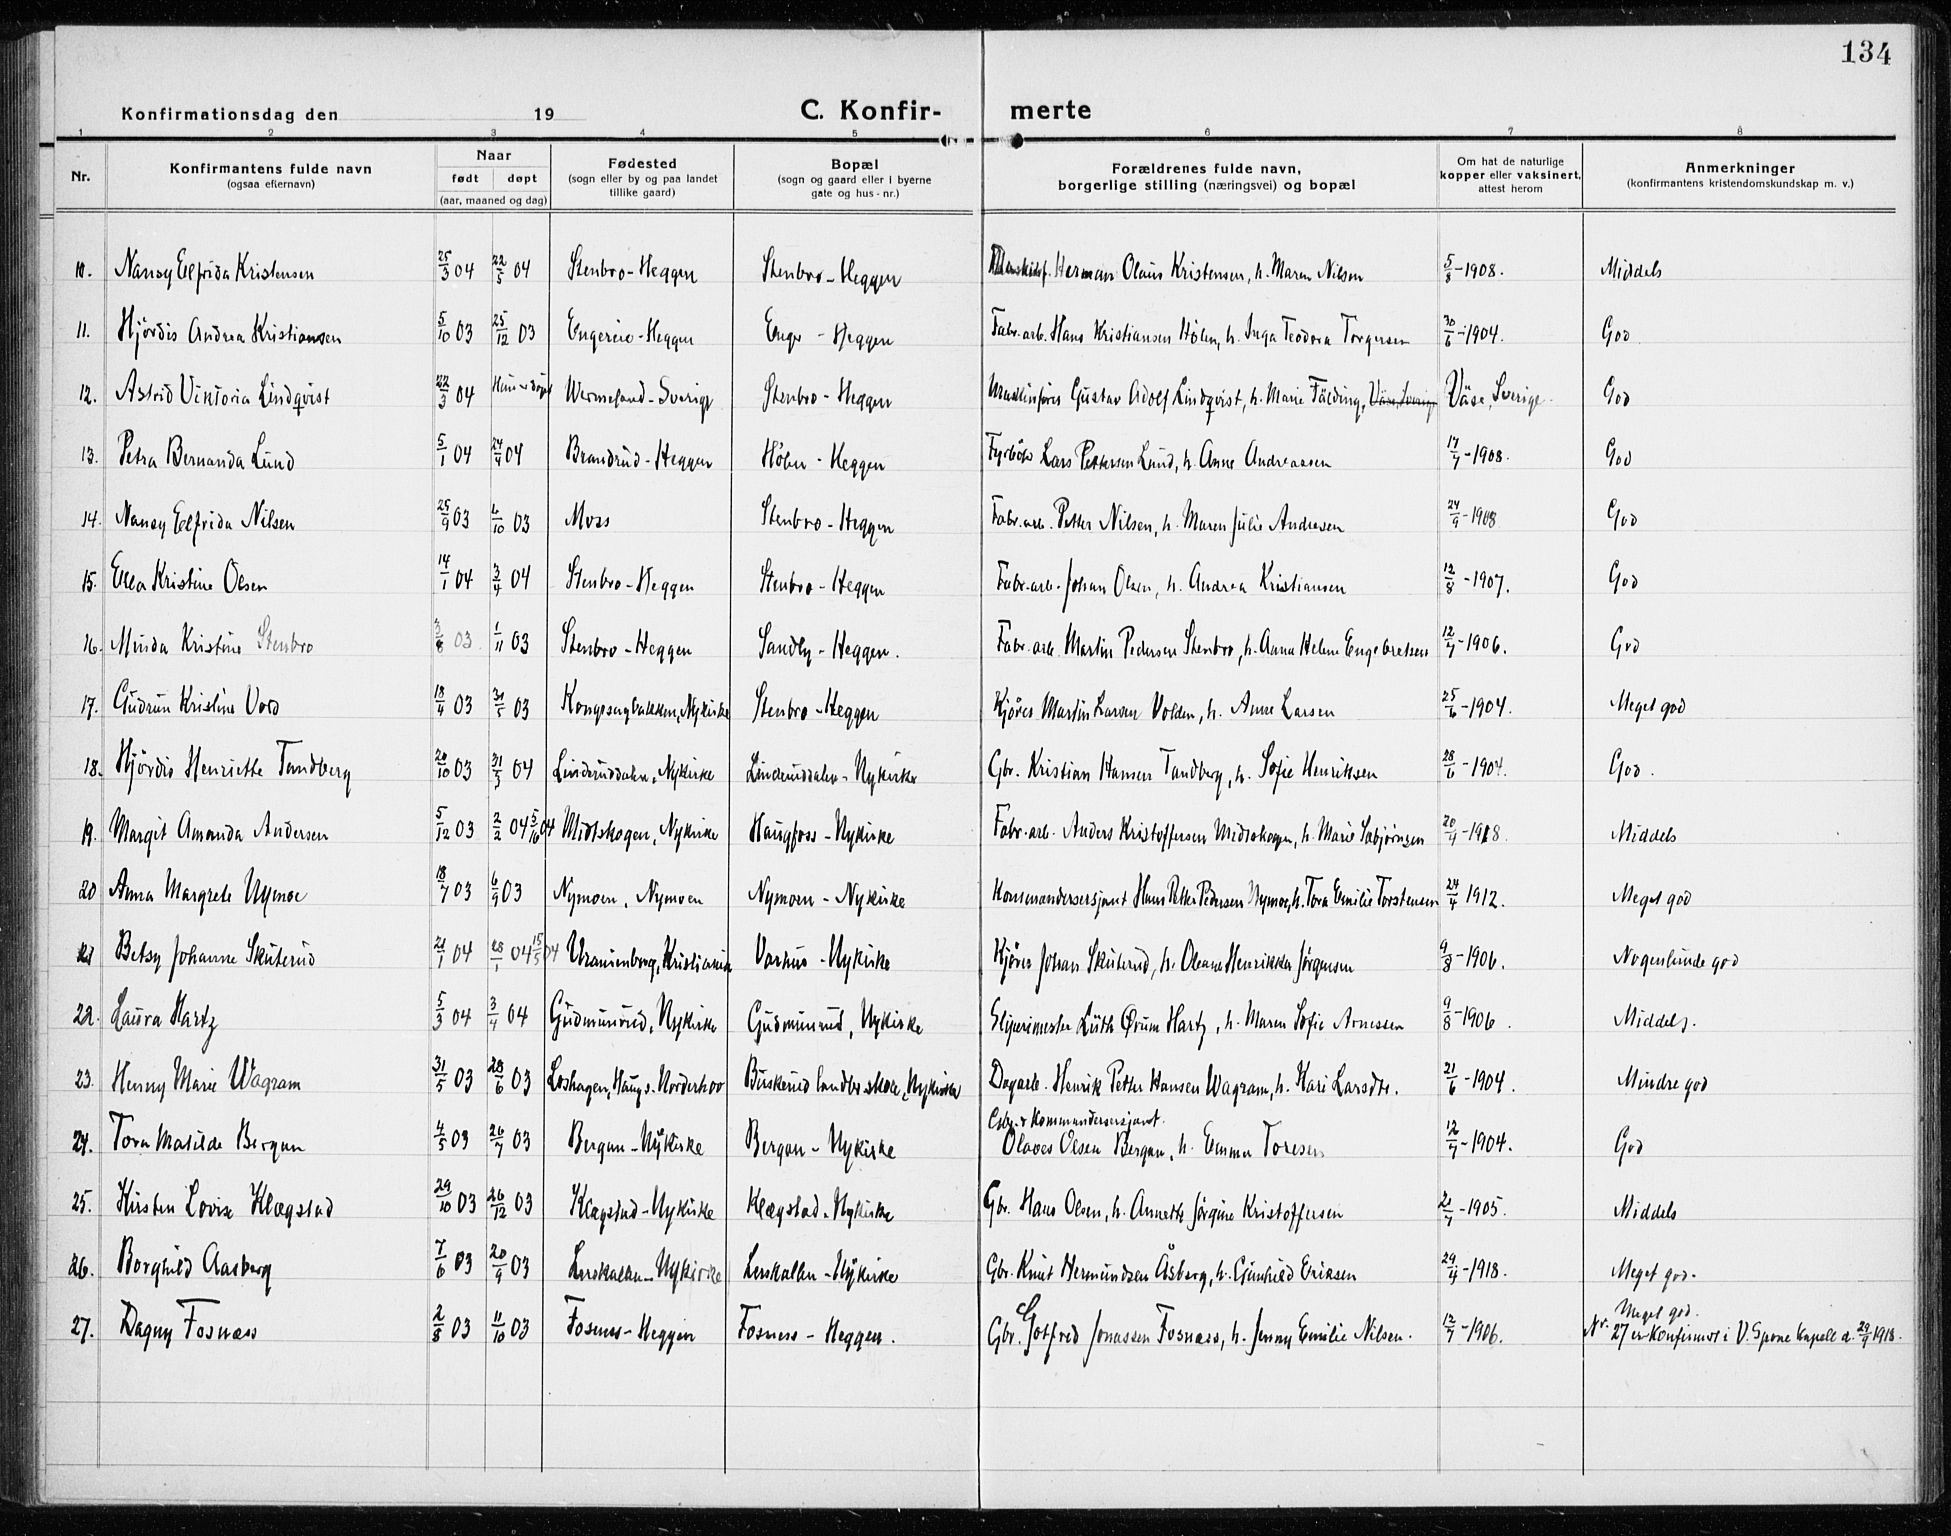 134
Konfirmationsdag den 19 C. Konfir- merte
1 2 3 4 5 6 7 8
Nr. Konfirmantens fulde navn (ogsaa efternavn) Naar født døpt (aar, maaned og dag) Fødested (sogn eller by og paa landet tillike gaard) Bopæl (sogn og gaard eller i byerne gate og hus-nr.) Forældrenes fulde navn, borgerlige stilling (næringsvei) og bopæl Om hat de naturlige kopper eller vaksinert, attest herom Anmerkninger (konfirmantens kristendomskundskap m. v.)
10. Nancy Elfrida Kristensen 25/3 04 22/5 04 Stenbro-Heggen Stenbro-Heggen Herman Olaus Kristensen, h. Maren Nilsen 5/8-1908. Middels
11. Hjördis Andrea Kristiansen 5/10 03 25/12 03 Engereie-Heggen Enger-Heggen Fabr.arb. Hans Kristiansen Hölen, h. Inga Teodora Torgersen 30/6-1904. God
12. Astrid Viktoria Lindqvist 22/3 04 Wermeland-Sverige Stenbro-Heggen Gustav Adolf Lindqvist, h. Marie Fälding, Väse, Sverige Väse, Sverige God
13. Petra Bernanda Lund 5/1 04 24/4 04 Brandrud-Heggen Hölen-Heggen Fyrböter Lars Pettersen Lund, h. Anne Andreassen 17/7-1908. God
14. Nancy Elfrida Nilsen 25/9 03 6/10 03 Moss Stenbro-Heggen Fabr.arb. Petter Nilsen, h. Maren Julie Andresen 24/9-1908 God
15. Ella Kristine Olsen 14/1 04 3/4 04 Stenbro-Heggen Stenbro-Heggen Fabr.arb. Johan Olsen, h. Andrea Kristiansen 12/8-1907. God
16. Minda Kristine Stenbro 3/8 03 1/11 03 Stenbro-Heggen Sandby-Heggen. Fabr.arb. Martin Pedersen Stenbro, h. Anna Helene Engebretsen 12/7-1906. God
17. Gudrun Kristine Vold 18/4 03 31/5 03 Kongssagbakken, Nykirke Stenbro-Heggen Kjörer Martin Larsen Volden, h. Anne Larsen 25/6-1904. Meget god
18. Hjördis Henriette Tandberg 20/10 03 31/3 04 Linderuddalen, Nykirke Linderuddalen-Nykirke Gbr. Kristian Hansen Tandberg, h. Sofie Henriksen 28/6-1904. God.
19. Margit Amanda Andersen 5/12 03 2/2 04 5/10 04 Midtskogen, Nykirke Haugfoss-Nykirke Fabr.arb. Anders Kristoffersen Midtskogen, h. Marie Isabjörnsen 20/9-1918. Middels
20 Anna Margrete Nymoe 18/7 03 6/9 03 Nymoen, Nymoen Nymoen-Nykirke Kommandersersjant Hans Petter Pedersen Nymoe, h. Tora Emilie Torstensen 24/4 1912. Meget god
21 Betsy Johanne Skuterud 21/1 04 28/1 04 15/5 04 Uranienborg, Kristiania Varhus-Nykirke Kjörer Johan Skuterud, h. Oleane Henrikka Jörgensen 9/8-1906. Nogenlunde god
22. Laura Hartz 5/3 04 3/4 04 Gudmunrud, Nykirke Gudmunrud, Nykirke Sliperimester Lüth Ørum Hartz, h. Maren Sofie Arnessen 9/8-1906. Middels.
23. Henny Marie Wagram 31/5 03 28/6 03 Loshagen, Haugs-Norderhov Buskerud landbr.skole, Nykirke Dagarb. Henrik Petter Hansen Wagram, h. Kari Larsdtr. 21/6-1904. Mindre god
24. Tora Matilde Bergan 4/5 03 26/7 03 Bergan-Nykirke Bergan-Nykirke Gbr. & Kommandersersjant. Olaves Olsen Bergan, h. Emma Toresen 12/7-1904. God
25. Kirsten Lovise Klægstad 29/10 03 26/12 03 Klægstad-Nykirke Klægstad-Nykirke Gbr. Hans Olsen, h. Annette Jörgine Kristoffersen 21/7-1905. Middels
26. Borghild Aasberg 7/6 03 20/9 03 Lerskallen-Nykirke Lerskallen-Nykirke Gbr. Knut Hermundsen Åsberg, h. Gunhild Eriksen 29/4-1918. Meget god.
27. Dagny Fosnæss 2/8 03 11/10 03 Fosness-Heggen Fosness-Heggen. Gbr. Gotfred Jonassen Fosnæss, h. Jenny Emilie Nilsen. 12/7-1906. Meget god. Nr. 27 er konfirmert i V. Spone kapell d. 29/9 1918.